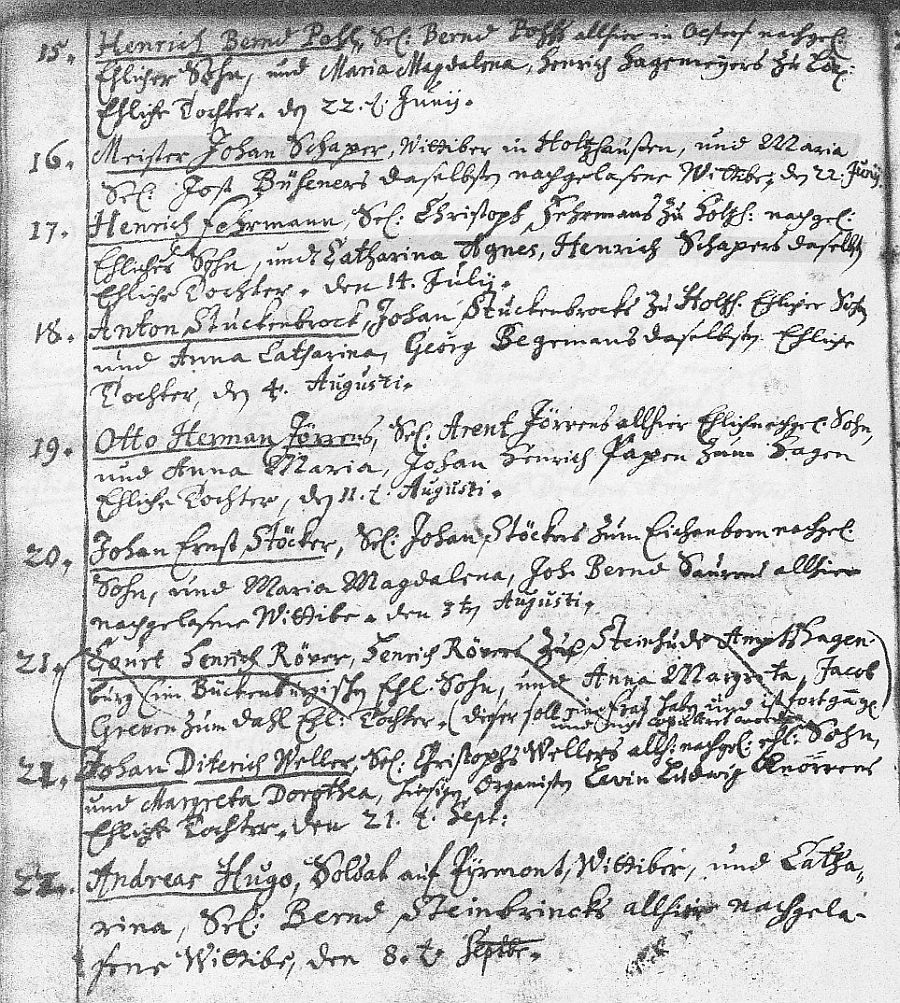 15. Henrich Bernd Pohl, Sel: Bernd Pohls allhier in Oesterf nachgel:
Ehlicher Sohn, und Maria Magdalena, Henrich Hagemeyers zu
Ehliche Tochter. den 22. t. Junij.
16. Meister Johan Schaper, Wittiber in Holtzhausen, und Maria
Sel: Jost Büseners daselbsten nachgelasene Wittibe, den 22. Junij.
17. Henrich Fehrmann, Sel: Christoph Fehrmans zu Holtzh: nachgel:
Ehlicher Sohn, und Catharina Agnes, Henrich Schapers daselbst
Ehliche Tochter. den 14. Julij.
18. Anton Stuckenbrock, Johan Stuckenbrocks zu Holtzh. Ehlicher Sohn
und Anna Catharina, Georg Begemans daselbsten Ehliche
Tochter, den 4. Augusti.
19. Otto Herman Jörrens, Sel: Arent Jörrens allhier Ehl. nachgel. Sohn,
und Anna Maria, Johan Henrich Papen zum Hagen
Ehliche Tochter, den 11. t. Augusti.
20. Johan Ernst Stöcker, Sel: Johan Stöckers zum Eichenborn nachgel.
Sohn, und Maria Magdalena, Joh. Bernd Saurens allhier
nachgelasene Wittibe. den 3ten Augusti.
21. Court Henrich Röver, Henrich Rövers zur Steinhude Ampts Hagen-
burg (im Bückenburgischen Ehl. Sohn, und Anna Margreta, Jacob
Greven zum Dahl Ehl: Tochter. (dieser soll eine Frau haben und ist fortgang.
und nicht copuliret worden
21. Johan Diterich Weller, Sel: Christophs Wellers allh: nachgel: ehl: Sohn,
und Margreta Dorothea, hiesigen Organisten Levin Ludwig Knörrens
Ehliche Tochter. den 21. t. Sept:
22. Andreas Hugo, Soldat auf Pyrmont, Wittiber, und Catha-
rina, Sel: Bernd Steinbrincks allhier nachgela-
sene Wittibe, den 8. t. Septbr.